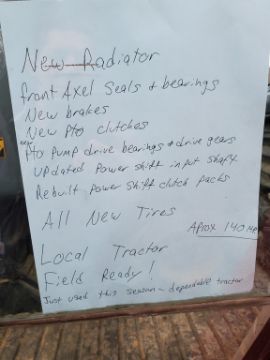 New Radiator
front Axel Seals & bearings
New brakes
New Pto clutches
New
Pto Pump drive bearings & drive gears
Updated Power shift input shaft
Rebuilt Power Shift clutch packs
All New Tires
Aprox 140 HP
Local Tractor
Field Ready!
Just used this season - dependable tractor